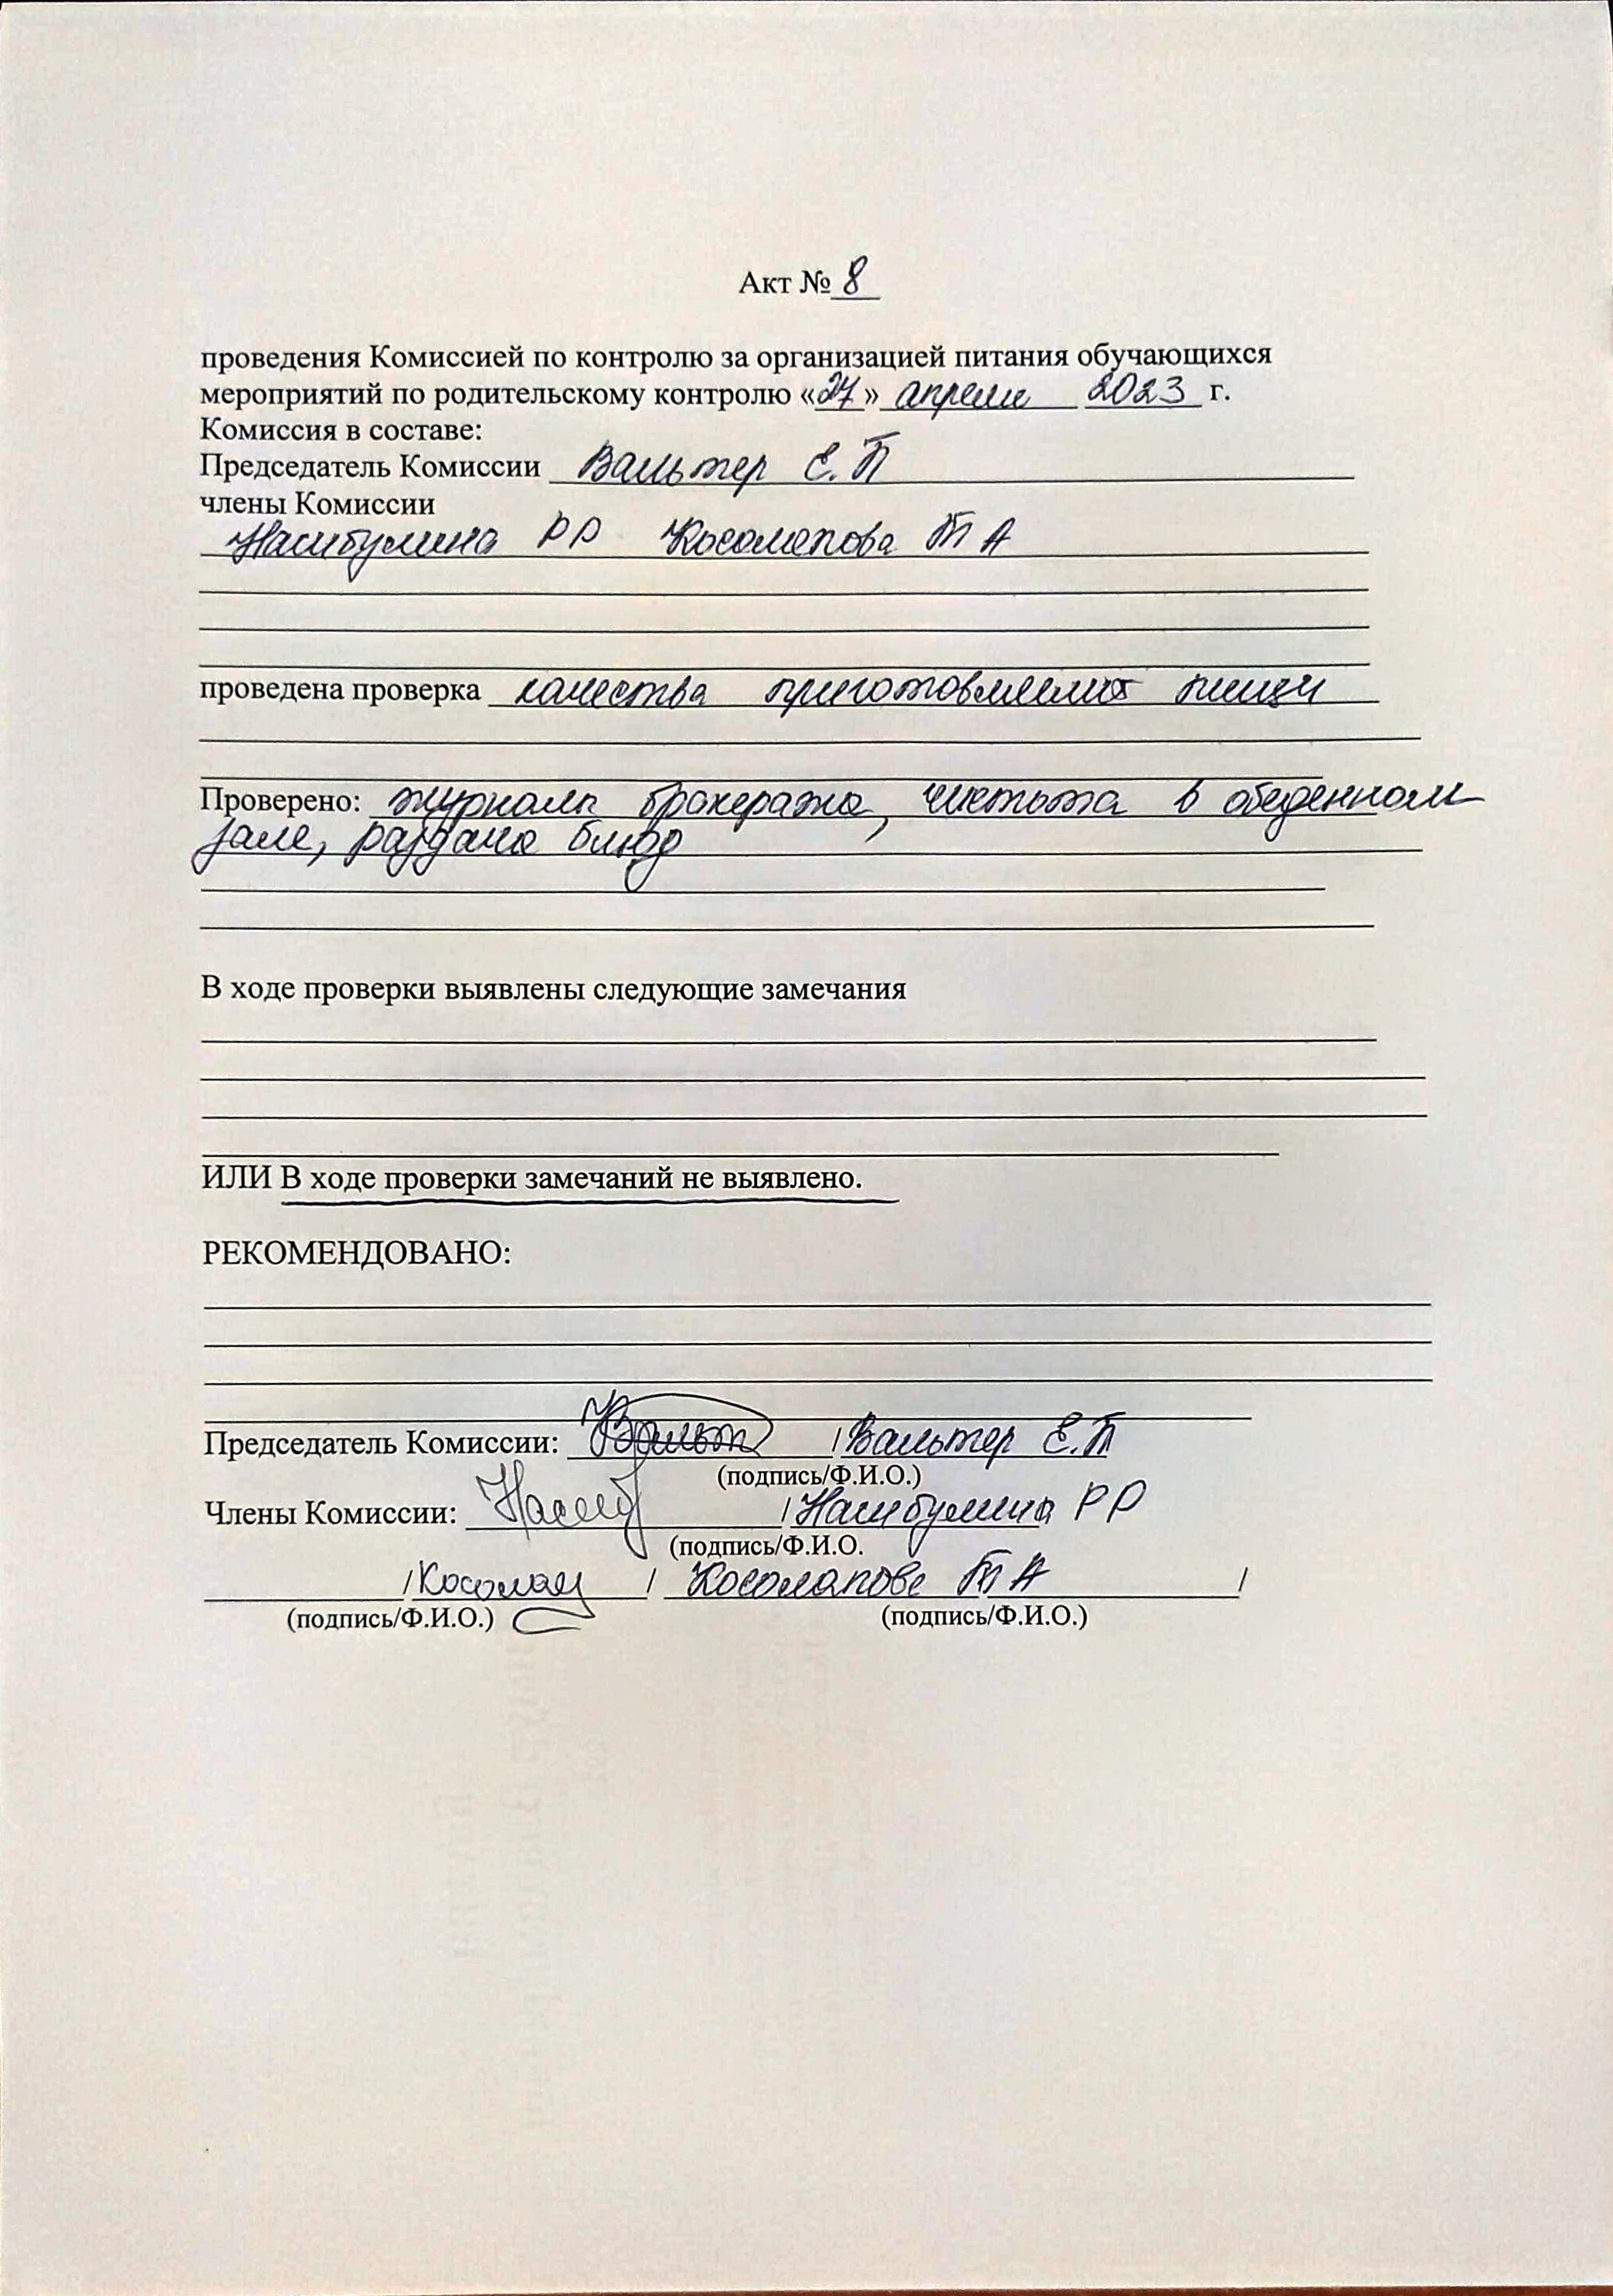 Акт № 8
проведения Комиссией по контролю за организацией питания обучающихся
мероприятий по родительскому контролю «27» апреля 2023 г.
Комиссия в составе:
Председатель Комиссии Вальтер Е.П
члены Комиссии
Насибулина РР Косолапова Т А
проведена проверка качества приготовления пищи
Проверено: журналы бракеража, чистота в обеденном
зале, раздача блюд
В ходе проверки выявлены следующие замечания
ИЛИ В ходе проверки замечаний не выявлено.
РЕКОМЕНДОВАНО:
Председатель Комиссии: Вальт / Вальтер Е.П
(подпись/Ф.И.О.)
Члены Комиссии: Насиб / Насибулина РР
(подпись/Ф.И.О.
/ Косолап / Косолапова Т А /
(подпись/Ф.И.О.) (подпись/Ф.И.О.)